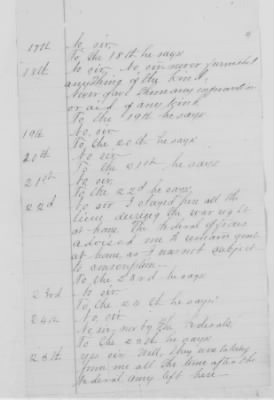 17th No sir.
To the 18th he says
18th No sir. No sir never furnished
anything of the kind.
Never gave them any information
or aid of any kind.
To the 19th he says
19th No sir.
To the 20th he says
20th No sir
To the 21st he says
21st No sir.
To the 22d he says,
22d No sir I stayed here all the
time during the war right
at home. The Federal officers
advised me to remain quiet
at home, as I was not subject
to conscription.
To the 23rd he says
23rd No sir
To the 24th he says
24th No sir
No sir, nor by the Federals.
To the 25th he says
25th Yes sir. Well, they was taking
from me all the time after the
Federal army left here.